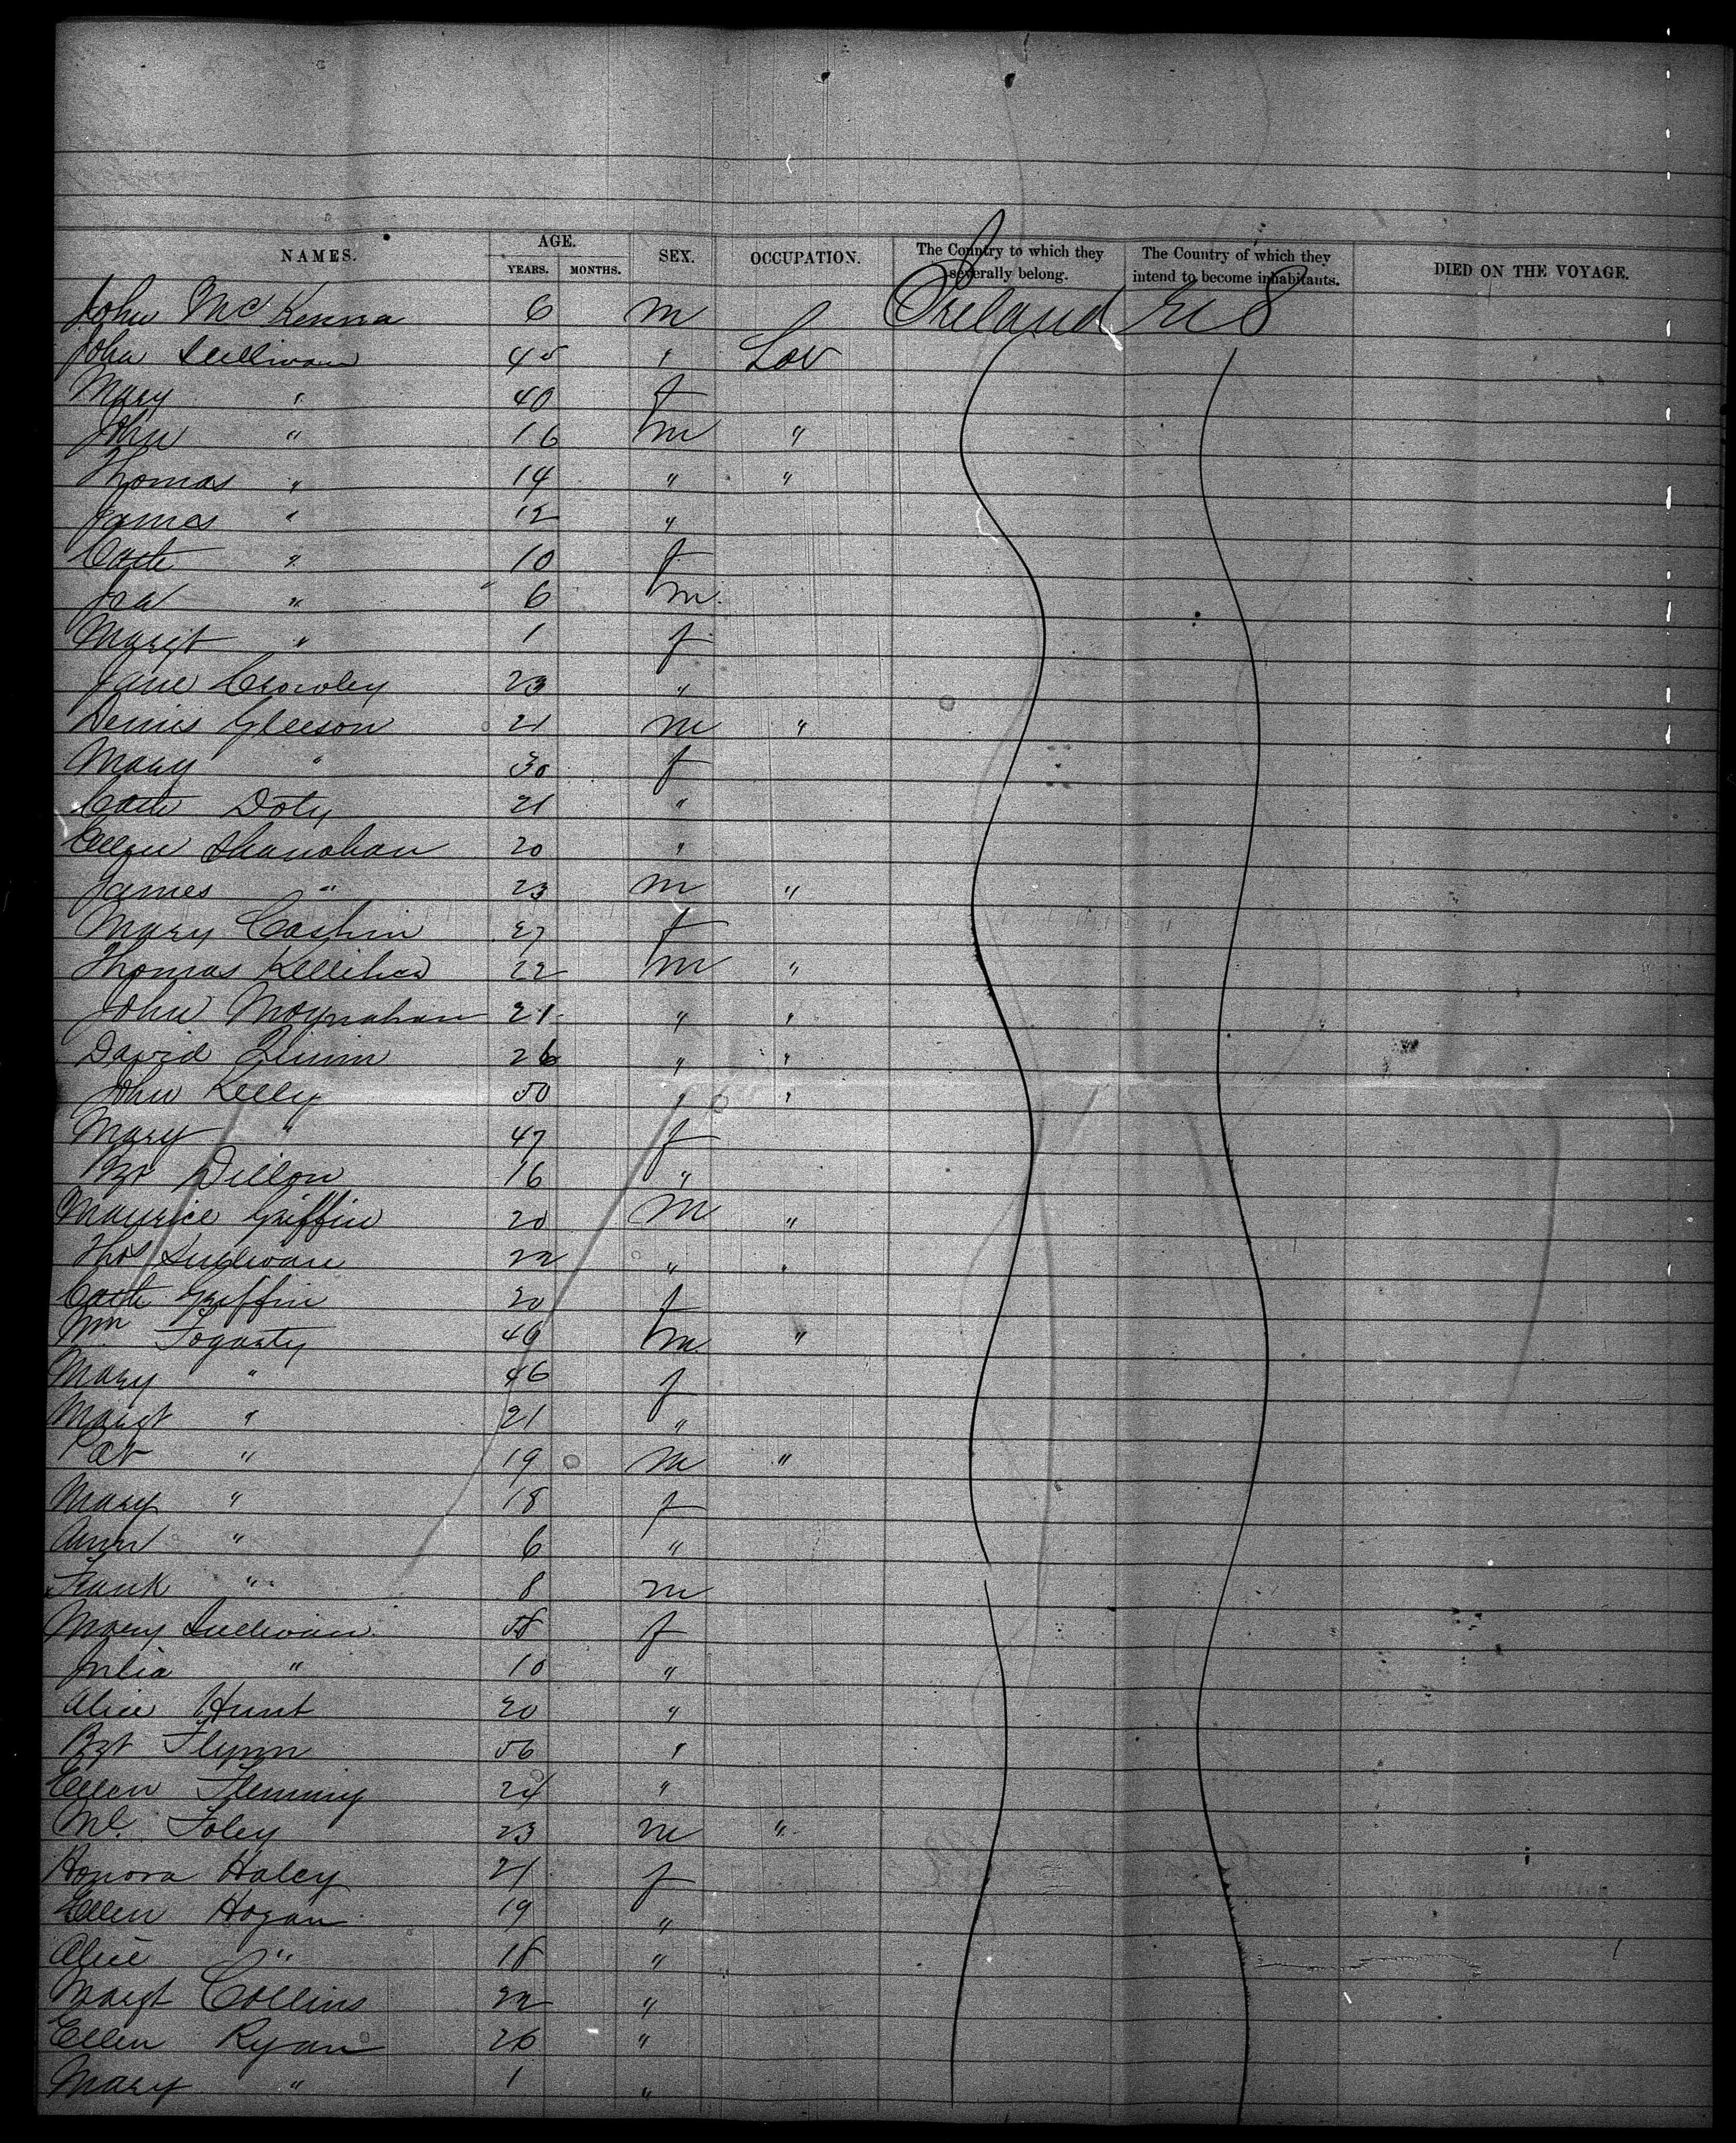 NAMES. AGE. SEX. OCCUPATION. The Country to which they severally belong. The Country of which they intend to become inhabitants. DIED ON THE VOYAGE.
YEARS. MONTHS.
John McKenna 6 m Ireland U S
John Sullivan 45 " Lab
Mary " 40 f
John " 16 m "
Thomas " 14 " "
James " 12 "
Cath " 10 f
" 6 m
Margt " 1 f
Jane Crowley 23 "
Dennis Gleeson 21 m "
Mary " 30 f
Cath Doty 21 "
Ellen Shanahan 20 "
James " 23 m "
Mary Cashin 27 f
Thomas Kelliher 22 m "
John Moynahan 21 " "
David Quinn 26 " "
John Kelly 50 " "
Mary " 47 f
Bgt Dillon 16 "
Maurice Griffin 20 m "
Thos Sullivan 22 " "
Cath Griffin 20 f
Wm Fogarty m "
Mary " 46 f
Margt " 21 "
Pat " 19 m "
Mary " 18 f
Ann " 6 "
Frank " 8 m
Mary Sullivan 58 f
Julia " 10 "
Alice Hunt 20 "
Bgt Flynn 56 "
Ellen Fleming 24 "
Ml. Foley 23 m "
Honora Haley 21 f
Ellen Hogan 19 "
Alice " 18 "
Margt Collins 22 "
Ellen Ryan 26 "
Mary " 1 "